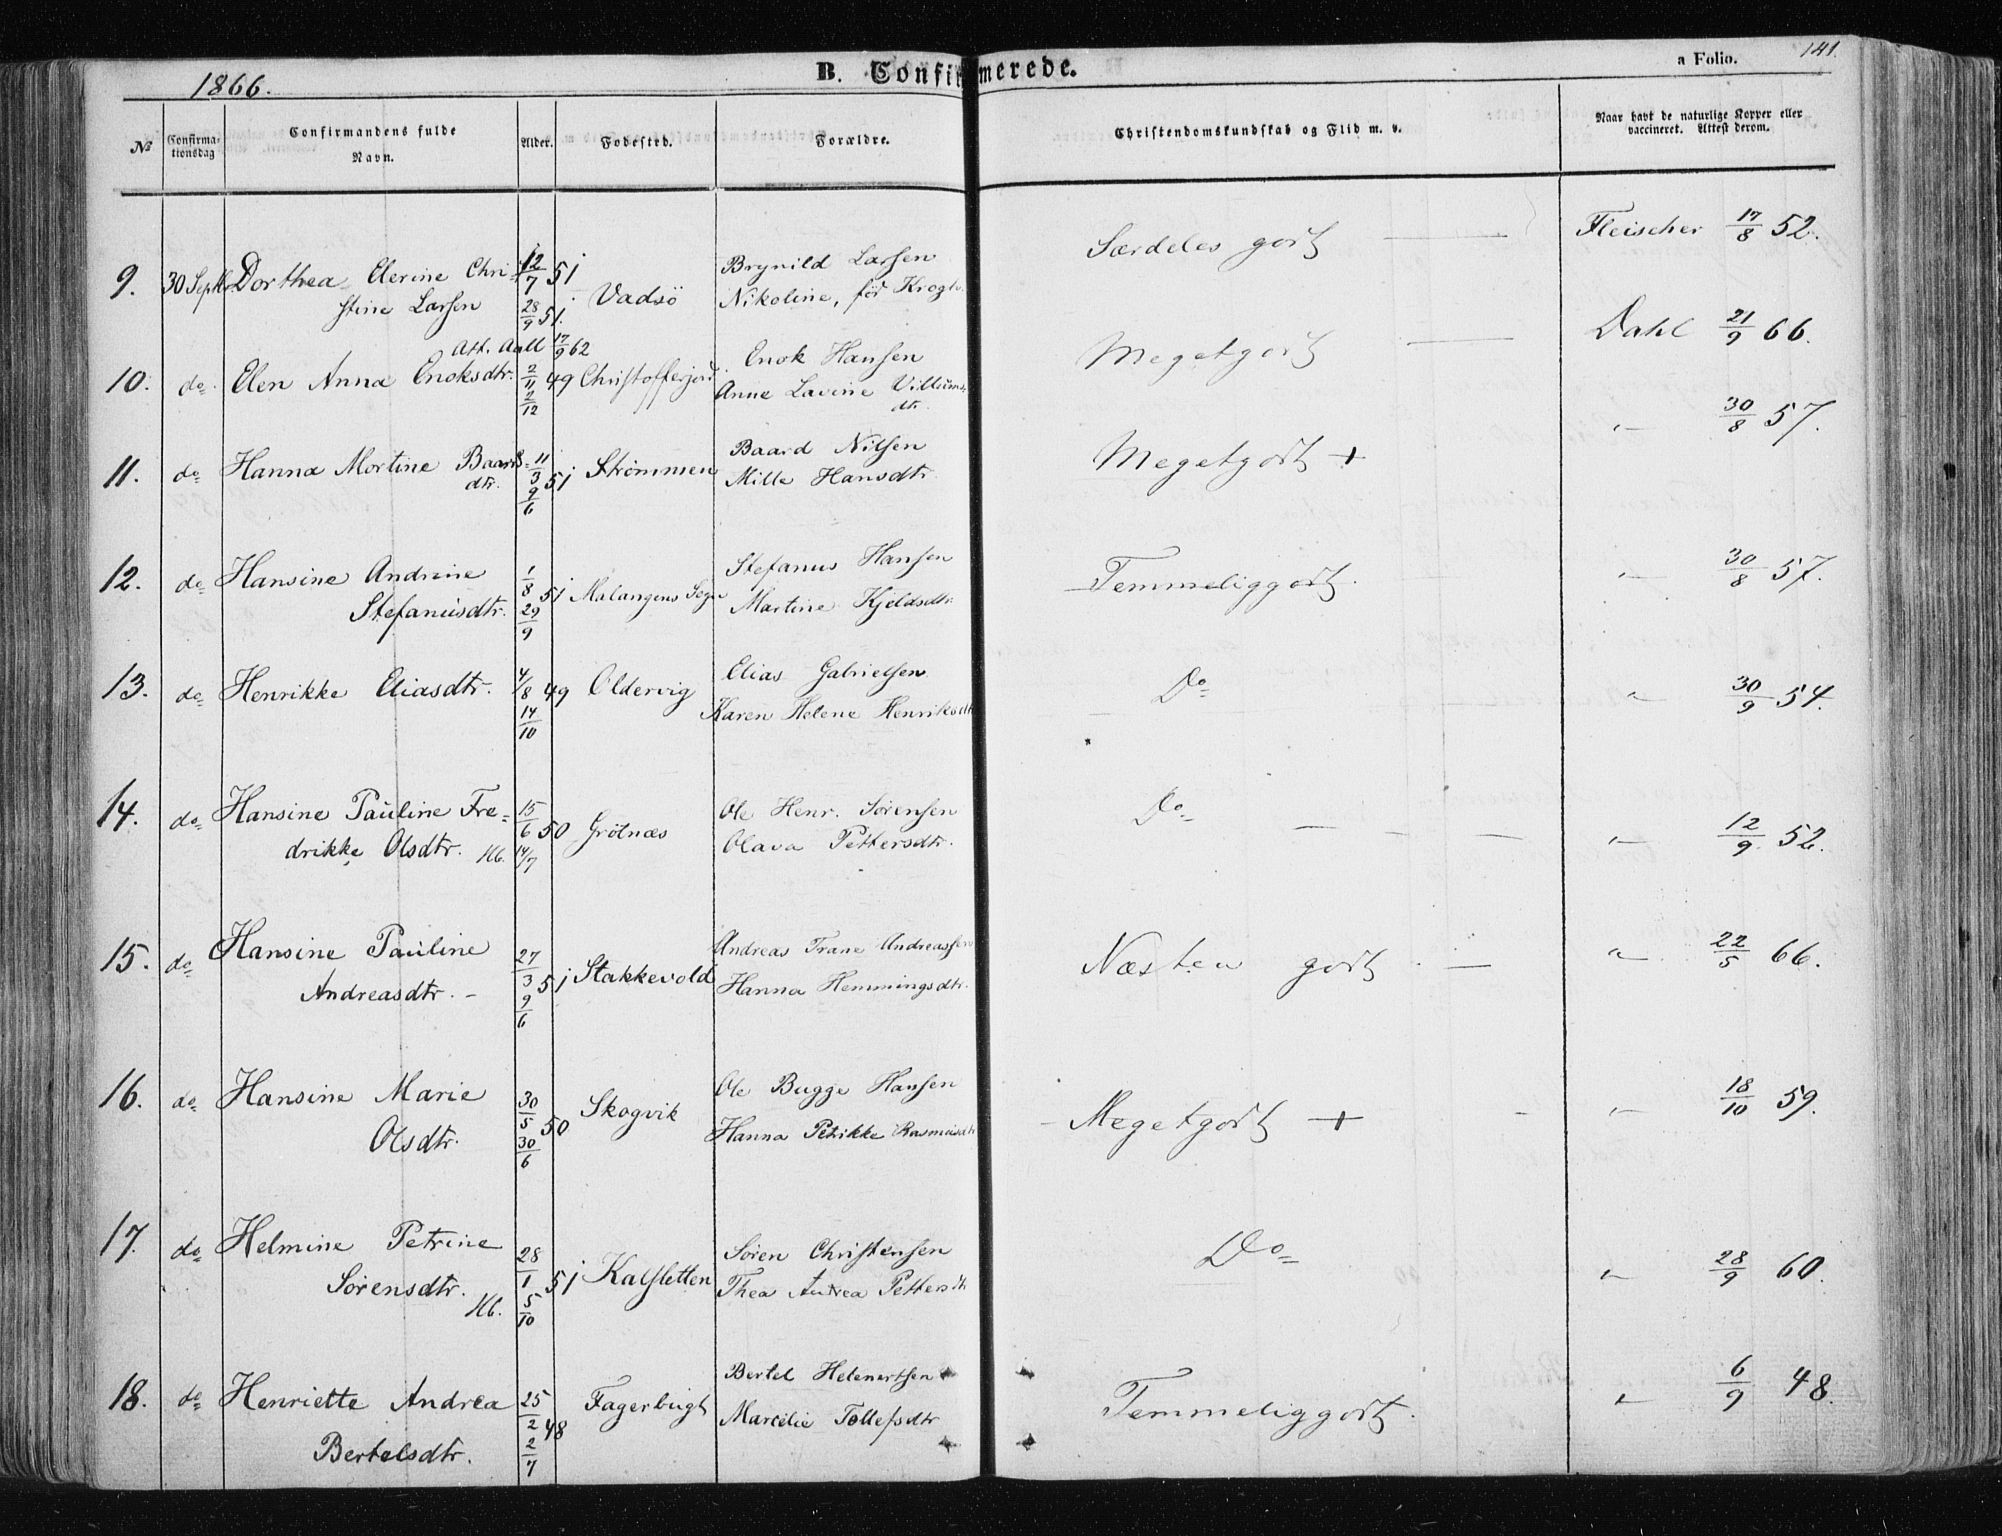 1866.
B. Confirmerede.
a Folio. 141.
№
Confirmationsdag
Confirmandens fulde Navn.
Alder.
Fødested.
Forældre.
Christendomskundskab og Flid m. v.
Naar havt de naturlige Kopper eller vaccineret. Attest derom.
9. 30 Septbr Dorthea Elerine Chri- 12/7 51 Vadsö Brynild Larsen Særdeles godt — Fleischer 17/8 52.
stine Larsen 28/9 51. Nikoline, för Krogh.
Att. Aall 17/9 62
10. do Elen Anna Enoksdtr. 2/11 49 Christofferjord. Enok Hansen Megetgodt — Dahl 21/9 66.
2/12 Anne Lavine Villums-
dtr.
11. do Hanna Mortine Baards- 11/3 51 Strømmen Baard Nilsen Megetgodt + " 30/8 57.
dtr. 9/6 Mille Hansdtr.
12. do Hansine Andrine 1/8 51 Malangens Sogn Stefanus Hansen Temmeliggodt. " 30/8 57.
Stefanusdtr. 29/9 Martine Kjeldsdtr.
13. do Henrikke Eliasdtr. 4/8 49 Oldervig Elias Gabrielsen Do " 30/9 54.
14/10 Karen Helene Henriksdtr
14. do Hansine Pauline Fre- 15/6 50 Grötnæs Ole Henr. Sörensen Do " 12/9 52.
drikke Olsdtr. 14/7 Olava Pettersdtr.
15. do Hansine Pauline 27/3 51 Stakkevold Andreas Trane Andreassen Næsten godt. — " 22/5 66.
Andreasdtr. 9/6 Hanna Hemmingsdtr.
16. do Hansine Marie 30/5 50 Skogvik Ole Bugge Hansen Megetgodt + " 18/10 59.
Olsdtr. 30/6 Hanna Petrikke Rasmusdtr
17. do Helmine Petrine 28/1 51 Kalsletten Sören Christensen Do " 28/9 60.
Sörensdtr. 5/10 Thea Andrea Pettersdtr
18. do Henriette Andrea 25/2 48 Fagerbugt Bertel Helenertsen Temmeliggodt. " 6/9 48.
Bertelsdtr. 2/7 Marcelie Tollefsdtr